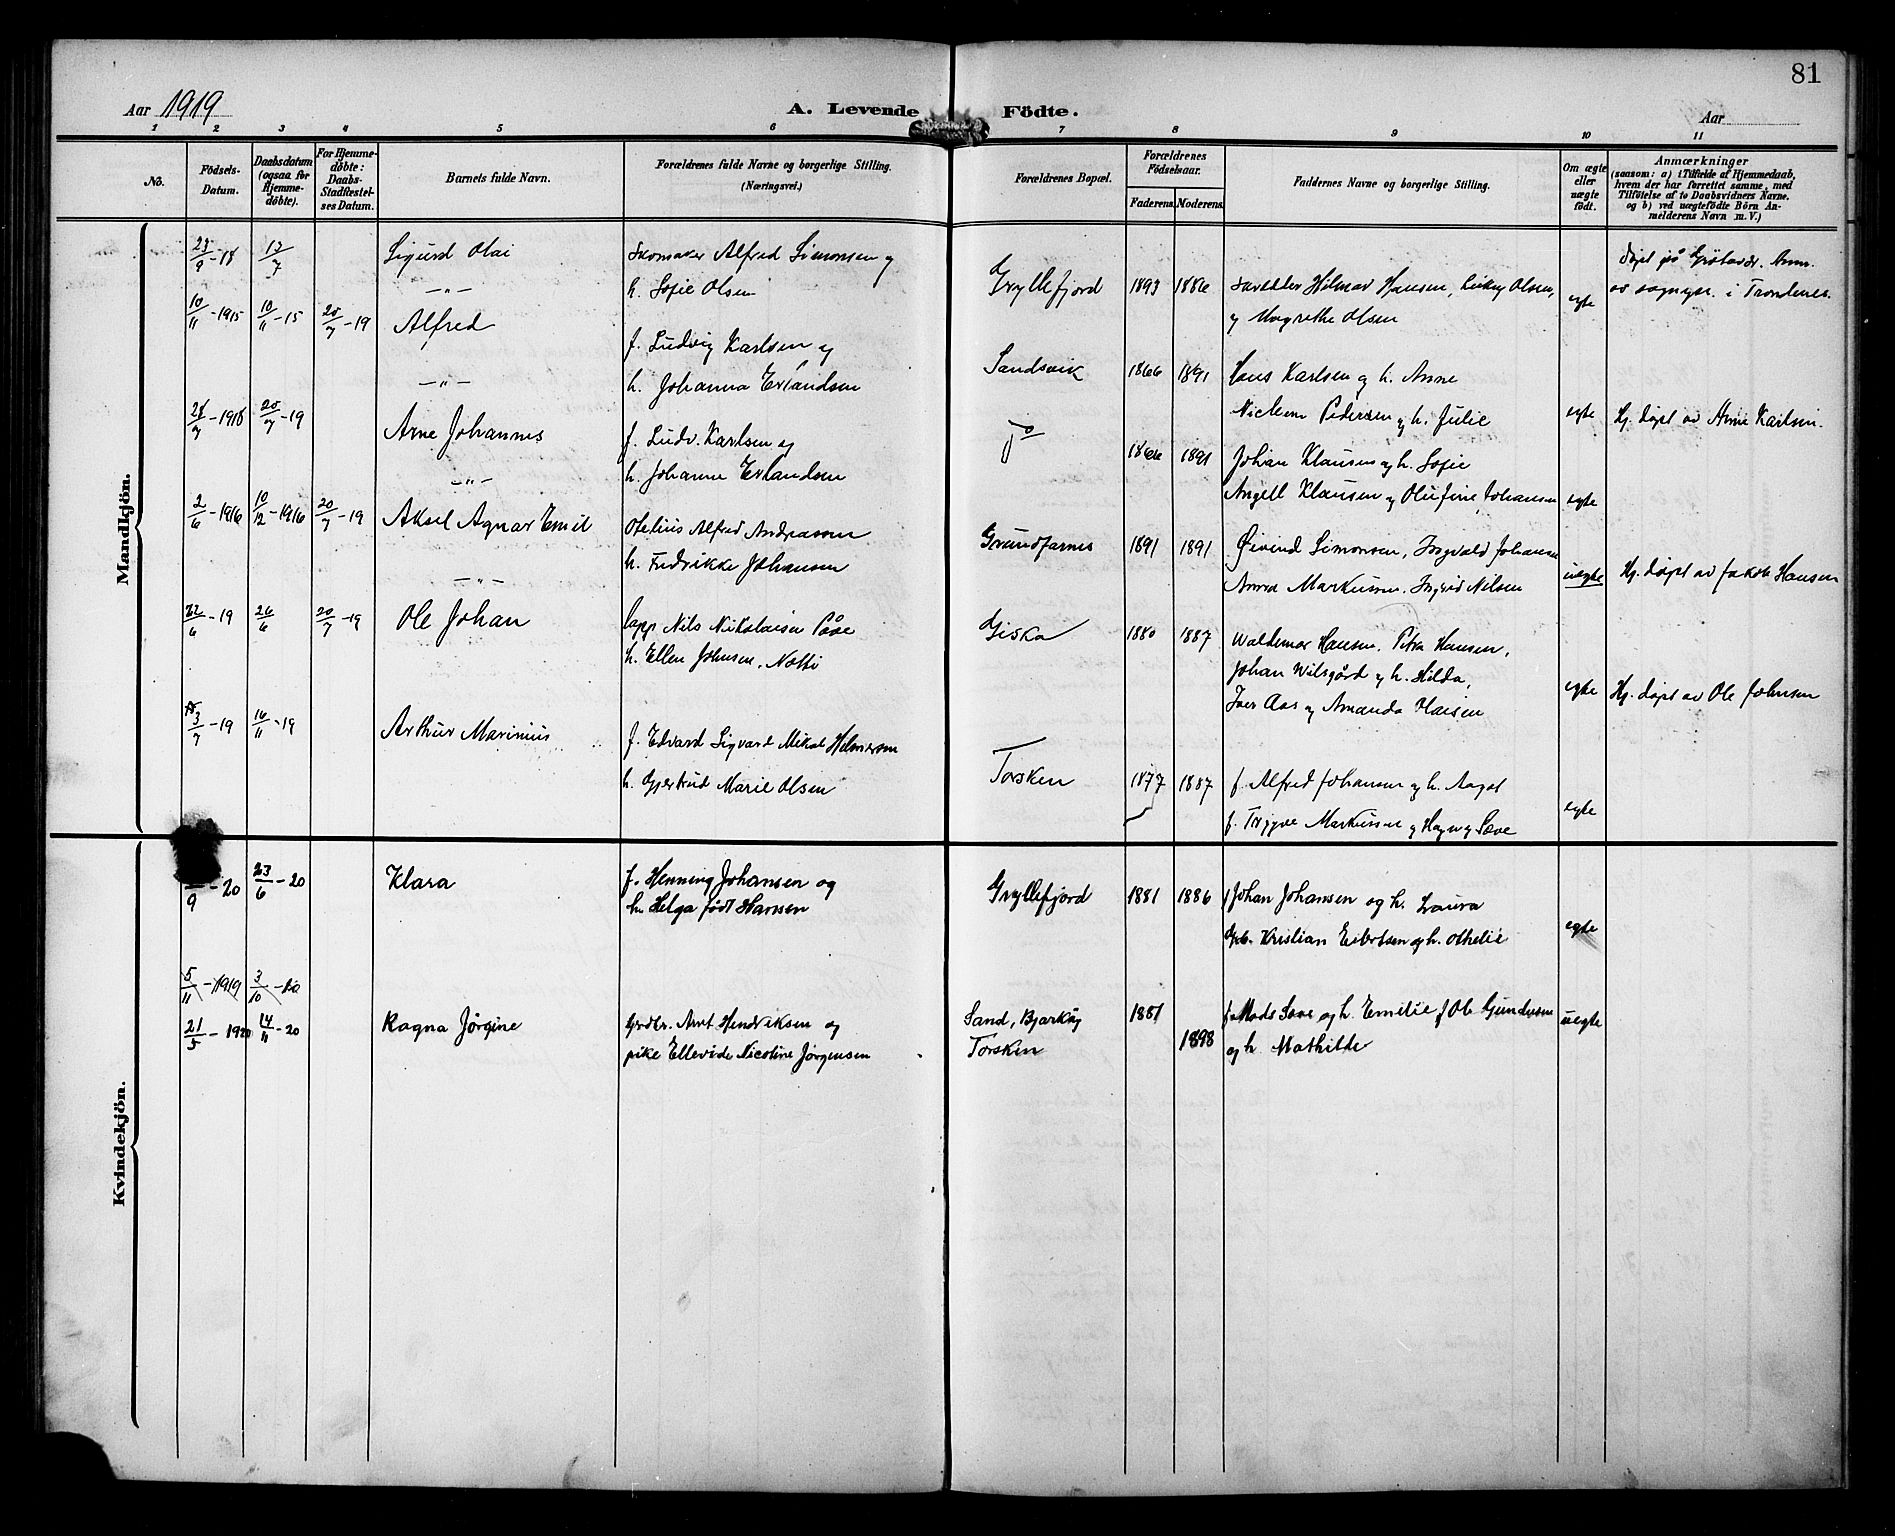 81
Aar 1919
A. Levende Födte.
Aar
1 2 3 4 5 6 7 8 9 10 11
No.
Födsels-
Datum.
Daabsdatum
(ogsaa for
Hjemme-
döbte).
For Hjemme-
döbte:
Daabs-
Stadfæstel-
ses Datum.
Barnets fulde Navn.
Forældrenes fulde Navne og borgerlige Stilling.
(Næringsvei.)
Forældrenes Bopæl.
Forældrenes
Födselsaar.
Faderens. Moderens.
Faddernes Navne og borgerlige Stilling.
Om ægte
eller
uægte
födt.
Anmærkninger
(saasom: a) i Tilfælde af Hjemmedaab,
hvem der har forrettet samme, med
Tilföielse af to Daabsvidners Navne.
og b) ved uægtefödte Börn An-
melderens Navn m. V.)
Mandkjön.
23/9 - 18 13/7 Sigurd Olai
Skomaker Alfred Simonsen og
h. Sofie Olsen
Gryllefjord 1893 1886
Hilmar Hansen, Olsen,
og Margrethe Olsen
egte
Døpt på Grøtavær. Anm.
av sognepr. i Trondenes.
10/11 - 1915 10/11 - 15 20/7 - 19 Alfred
f. Ludvig Karlsen og
h. Johanna Erlandsen
Sandsvik 1866 1891
Hans Karlsen og h. Anne
Pedersen og h. Julie
egte
Hj. døpt av Anne Karlsen.
28/7 - 1918 20/7 - 19 Arne Johannes
f. Ludv. Karlsen og
h. Johanne Erlandsen
do 1866 1891
Johan Klausen og h. Sofie
Angell Klausen og Olufine Johansen
egte
2/6 - 1916 10/12 - 1916 20/7 - 19 Aksel Agnar Emil
Otelius Alfred Andreassen
h. Fredrikke Johansen
Grundfarnes 1891 1891
Øivind Simonsen, Ingvald Johansen
Anna Markussen, Ingrid Nilsen
uegte
Hj. døpt av Jakob Hansen
22/6 - 19 26/6 20/7 - 19 Ole Johan
lapp Nils Nikolaisen Påve
h. Ellen Johnsen, Notti
Giska 1880 1887
Waldemar Hansen, Petra Hansen,
Johan Wilsgård og h. Hilda,
Iver Aas og Amanda Olaisen
egte
Hj. døpt av Ole Johnsen
13/7 - 19 16/11 - 19 Arthur Marinius
f. Edvard Sigvard Mikal Hilmersen
h. Gjertrud Marie Olsen
Torsken 1877 1887
f. Alfred Johansen og h. Aagot
f. Trygve Markussen og Save
egte
Kvindekjön.
9 - 20 23/6 - 20 Klara
f. Henning Johansen og
h. Helga født Hansen
Gryllefjord 1881 1886
f Johan Johansen og h. Laura
Gdb. Kristian Eilertsen og h. Othelie
egte
5/11 - 1919 3/10 - 20
21/5 - 1920 14/11 - 20 Ragna Jørgine
Grdbr. Arnt Hendriksen og
pike Ellevide Nicoline Jørgensen
Sand, Bjarkøy
Torsken
1881 1898
f Mads Save og h. Emilie f Ole Gundersen
og h. Mathilde
uegte